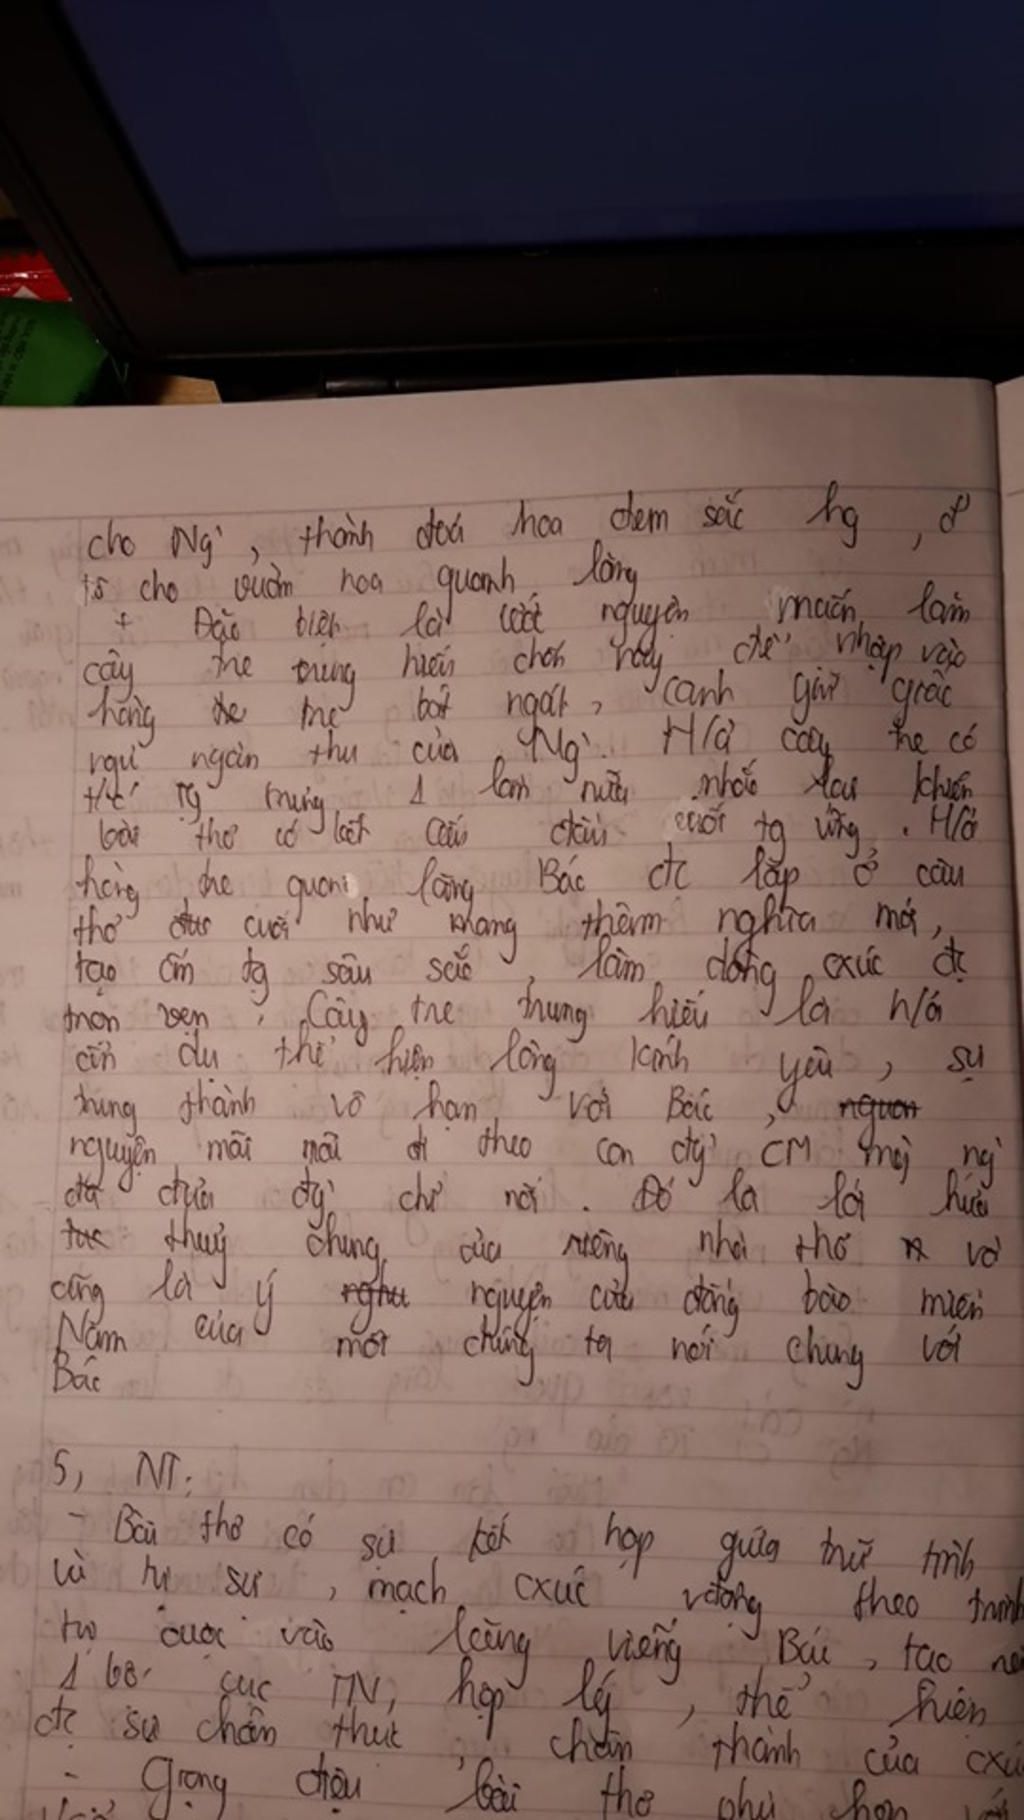 cho Ng', thành đoá hoa đem sắc hg, 
cho vườn hoa quanh lăng
+ Đặc biệt là ước nguyện muốn làm
cây tre trung hiếu chốn này để nhập vào
hàng tre bát ngát, canh giữ giấc
ngủ ngàn thu của Ng'. H/ả cây tre có
t/c tg trưng 1 lần nữa nhắc lại khiến
bài thơ có kết cấu đầu cuối tg ứng. H/ả
hàng tre quanh lăng Bác đc lặp ở câu
thơ cuối như mang thêm nghĩa mới,
tạo ấn tg sâu sắc, làm dòng cxúc đc
trọn vẹn. Cây tre trung hiếu là h/ả
ẩn dụ thể hiện lòng kính yêu, sự
trung thành vô hạn với Bác,
nguyện mãi mãi đi theo con đg' CM mà ng'
đã đưa đg' chỉ nơi. Đó là lời hứa
thuỷ chung của riêng nhà thơ và
cũng là ý nguyện của đồng bào miền
Nam của mới chúng ta nói chung với
Bác
5, NT:
- Bài thơ có sự kết hợp giữa trữ tình
và tự sự, mạch cxúc vđộng theo trình
tự cuộc vào lăng viếng Bác, tạo nên
1 bố cục TN, hợp lý, thể hiện
đc sự chân thực, chân thành của
- Giọng điệu bài thơ phù hợp với